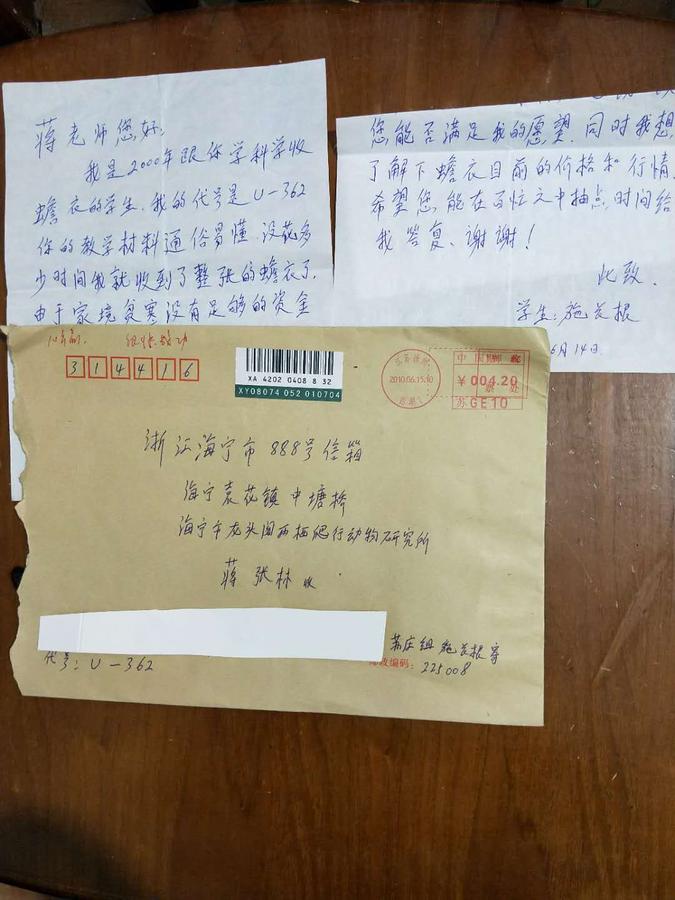 蒋老师您好:
我是2000年跟你学科学收
蟾衣的学生.我的代号是U-362
你的教学材料通俗易懂.没花多
少时间我就收到了整张的蟾衣了.
由于家境贫寒没有足够的资金
您能否满足我的愿望.同时我想
了解下蟾衣目前的价格和行情.
希望您能在百忙之中抽点时间给
我答复、谢谢!
此致.
学生:施 根
6月14日.
314416
XA 4202 0408 8 32
XY08074 052 010704
2010.06.15.10
中国邮政
¥004.20
苏GE10
浙江海宁市888号信箱
海宁袁花镇中塘桥
海宁市龙头阁两栖爬行动物研究所
蒋张林 收
苏庄组 施 根寄
代号:U-362
邮政编码:225008